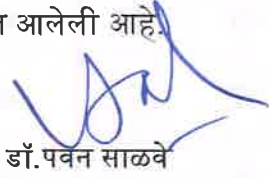 आलेली आहे.
डॉ.पवन साळवे